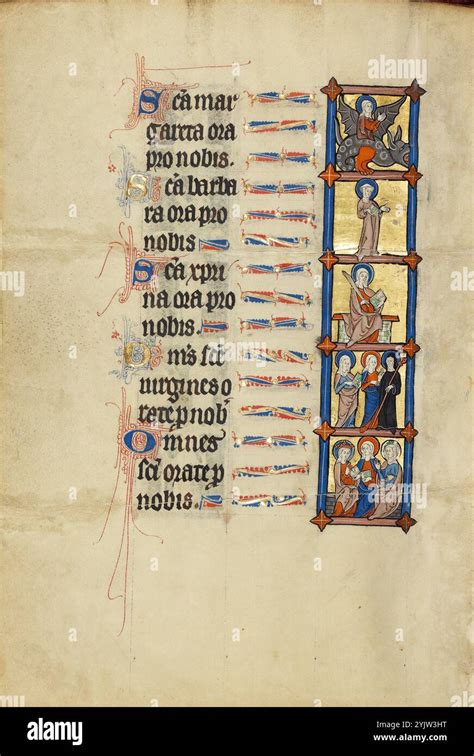 Sca mar
gareta ora
pro nobis.
Sca barba
ra ora pro
nobis
Sca xpri
na ora pro
nobis.
Oms sce
uirgines o
rate p nob
Omnes
sci orate p
nobis.
alamy
Image ID: 2YJW3HT
www.alamy.com